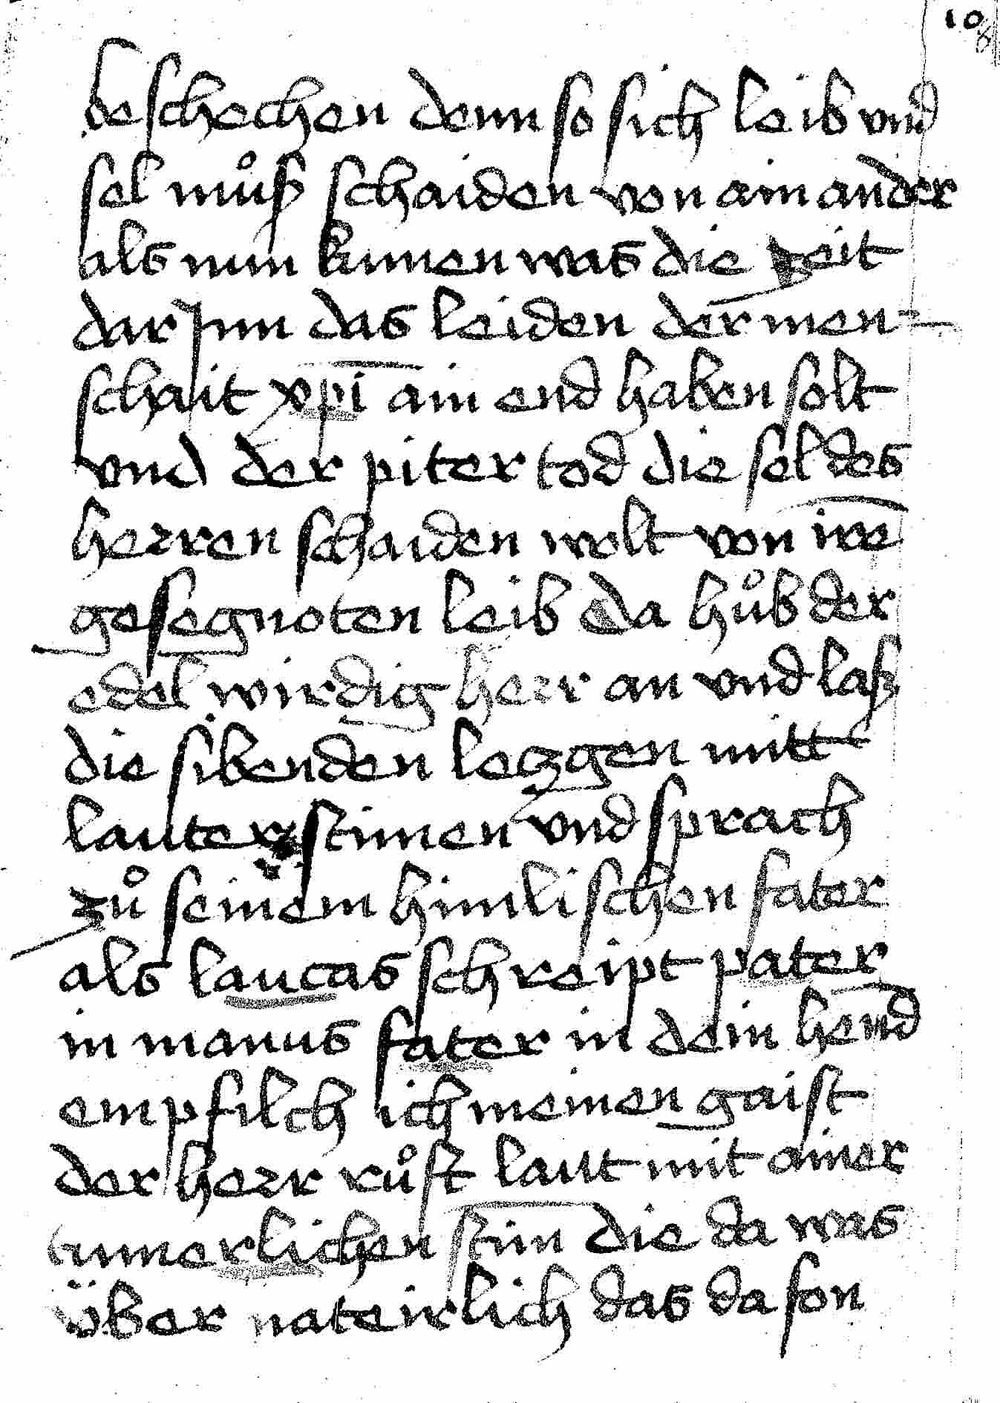 10
beschechen denn so sich leib vnd
sel můsß schaiden von ain ander
als nun kumen was die zeit
dar Jnn das leiden der men-
schait xp̄i ain end haben solt
vnd der piter tod die sel des
herren schaiden wolt von irē
gesegnoten leib da hůb der
edel wirdig herr an vnd laß
die sibenden letzgen mitt
lauter stimen vnd sprach
zů seinem himlischen fater
als laucas schreipt pater
in manus fater in dein hend
empfilch ich meinen gaist
der herr růft laut mit ainer
iamerlichen stim̄ die da was
über nateirlich das da fon